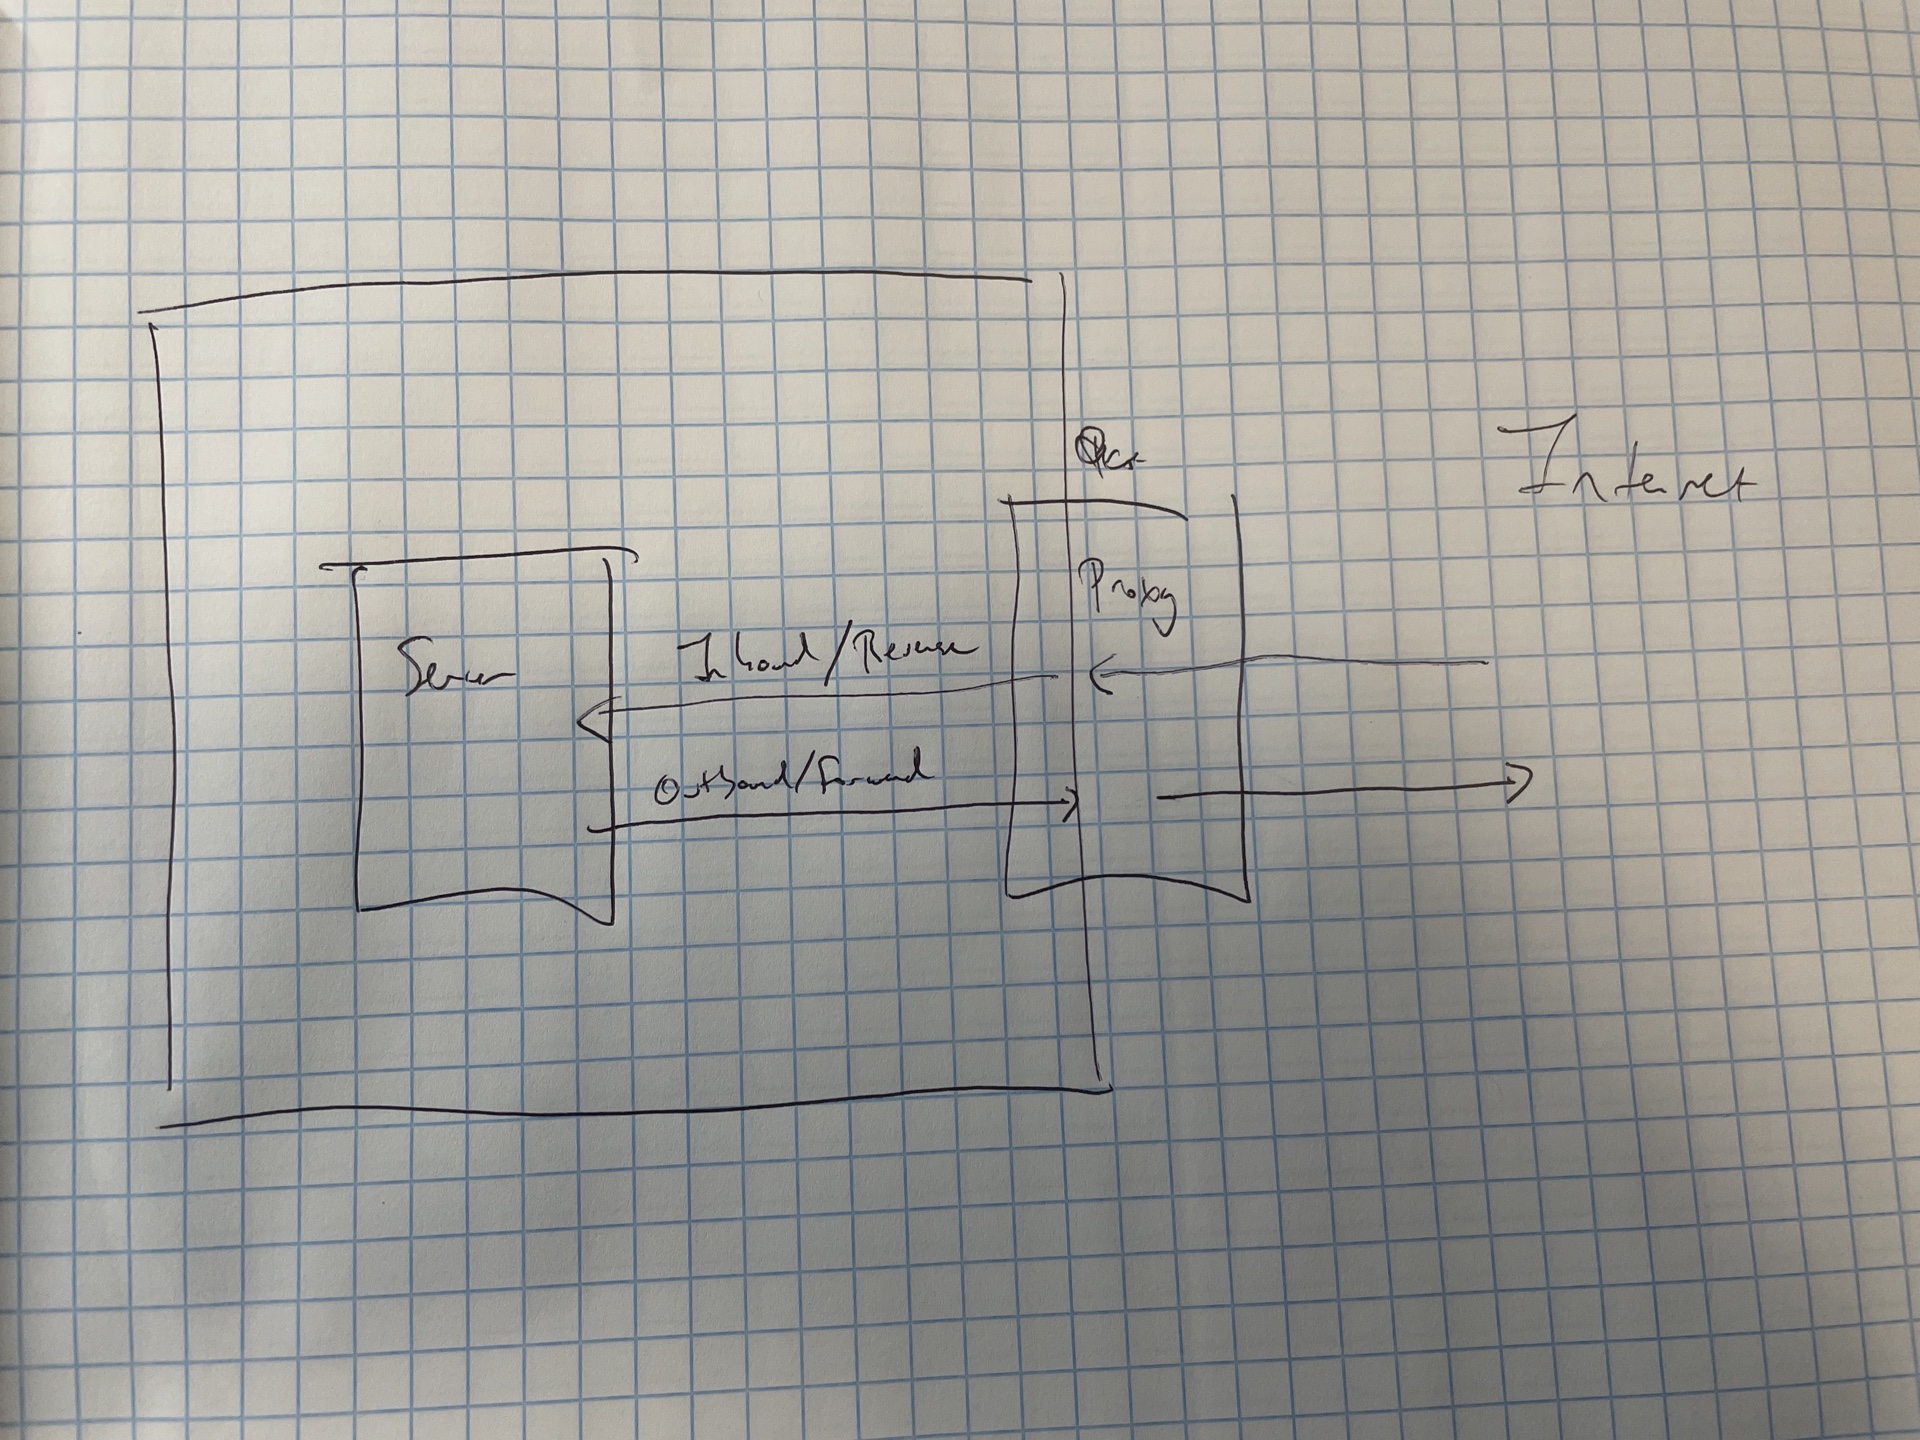 Internet
Proxy
Server
Inbound/Reverse
Outbound/Forward